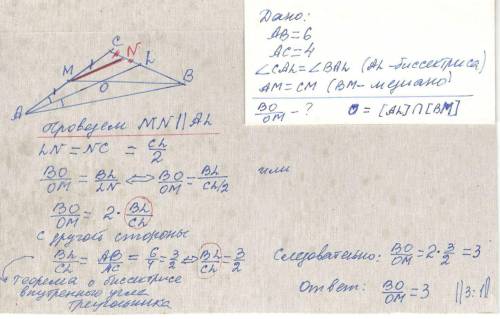 Дано:
AB=6
AC=4
∠CAL=∠BAL (AL-биссектриса)
AM=CM (BM-медиана)
BO/OM - ? O = [AL]∩[BM]
C
N
L
M
O
B
A
Проведем MN||AL
LN=NC = CL/2
BO/OM = BL/LN ⇔ BO/OM = BL/CL/2
или
BO/OM = 2· BL/CL
С другой стороны
BL/CL = AB/AC = 6/4 = 3/2 ⇔ BL/CL = 3/2
Теорема о биссектрисе
внутреннего угла
треугольника
Следовательно: BO/OM = 2·3/2 = 3
Ответ: BO/OM = 3 ||3:1||